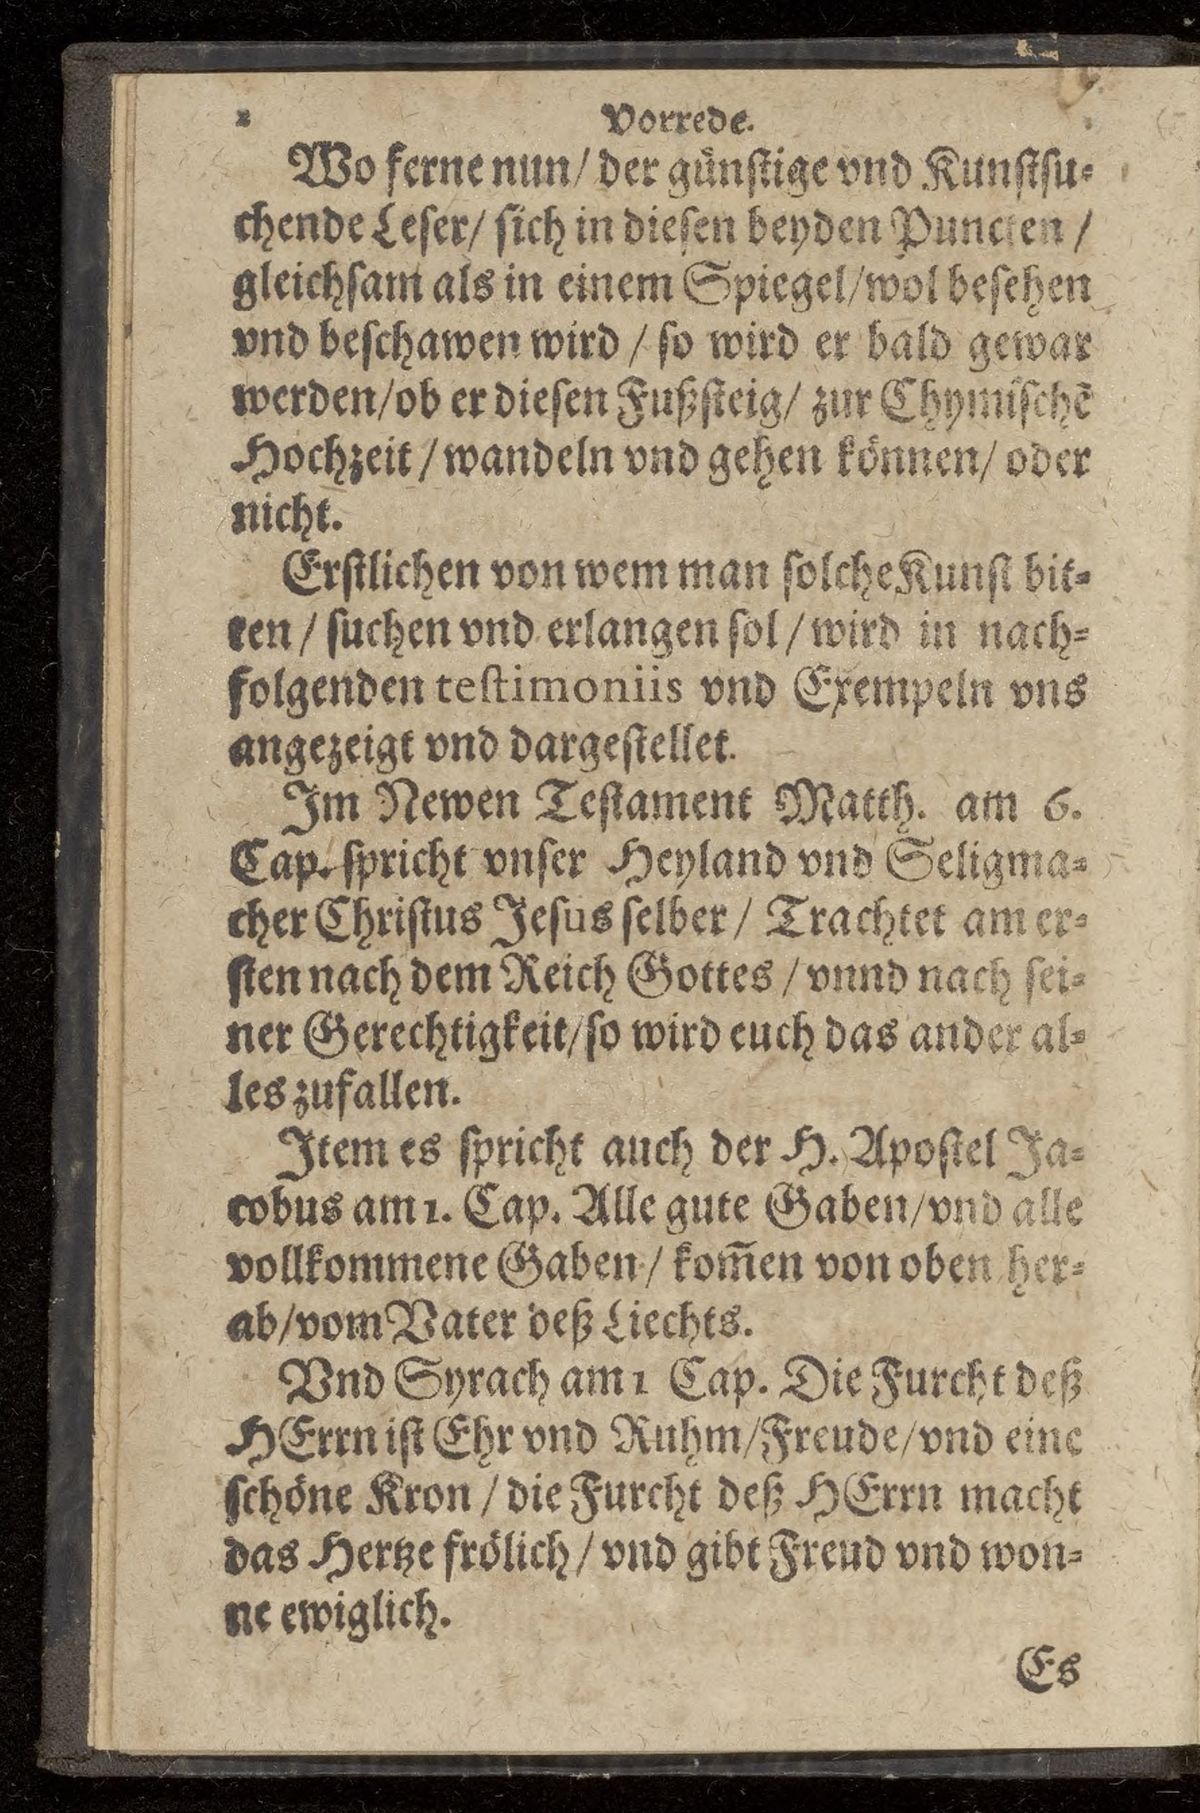 2 Vorrede.
Wo ferne nun/ der günſtige vnd Kunſtſu-
chende Leſer/ ſich in dieſen beyden Puncten /
gleichſam als in einem Spiegel/wol beſehen
vnd beſchawen wird / ſo wird er bald gewar
werden/ob er dieſen Fußſteig/ zur Chymiſchẽ
Hochzeit / wandeln vnd gehen können/ oder
nicht.
Erſtlichen von wem man ſolche Kunſt bit-
ten / ſuchen vnd erlangen ſol / wird in nach-
folgenden teſtimoniis vnd Exempeln vns
angezeigt vnd dargeſtellet.
Im Newen Teſtament Matth. am 6.
Cap. ſpricht vnſer Heyland vnd Seligma-
cher Chriſtus Jeſus ſelber / Trachtet am er-
ſten nach dem Reich Gottes / vnnd nach ſei-
ner Gerechtigkeit/ſo wird euch das ander al-
les zufallen.
Item es ſpricht auch der H. Apoſtel Ja-
cobus am 1. Cap. Alle gute Gaben/vnd alle
vollkommene Gaben / kom̃en von oben her-
ab/vom Vater deß Liechts.
Vnd Syrach am 1 Cap. Die Furcht deß
HErrn iſt Ehr vnd Ruhm/Freude/vnd eine
ſchöne Kron / die Furcht deß HErrn macht
das Hertze frölich / vnd gibt Freud vnd won-
ne ewiglich.
Es